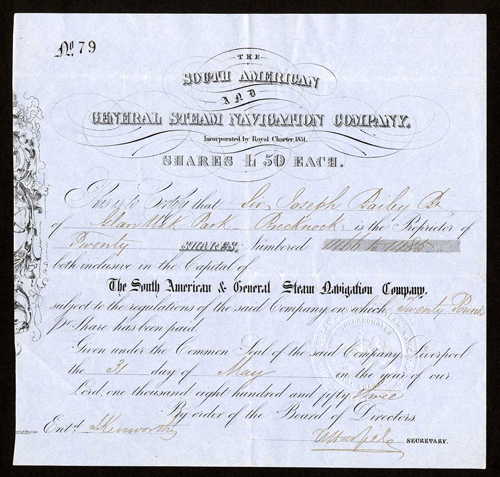 No. 79
THE
SOUTH AMERICAN
AND
GENERAL STEAM NAVIGATION COMPANY.
Incorporated by Royal Charter 1851.
SHARES £50 EACH.
This is to Certify that Sir Joseph Bailey Bt
of Glan Usk Park Brecknock is the Proprietor of
Twenty SHARES, Numbered 1166 to 1185
both inclusive in the Capital of
The South American & General Steam Navigation Company.
subject to the regulations of the said Company on which Twenty Pounds
pr. Share has been paid.
Given under the Common Seal of the said Company Liverpool
the 31 day of May in the year of our
Lord, one thousand eight hundred and fifty three
By order of the Board of Directors.
Entd. Kenworthy
SECRETARY.